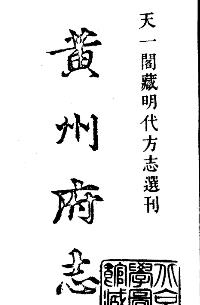 天一閣藏明代方志選刊
黃州府志